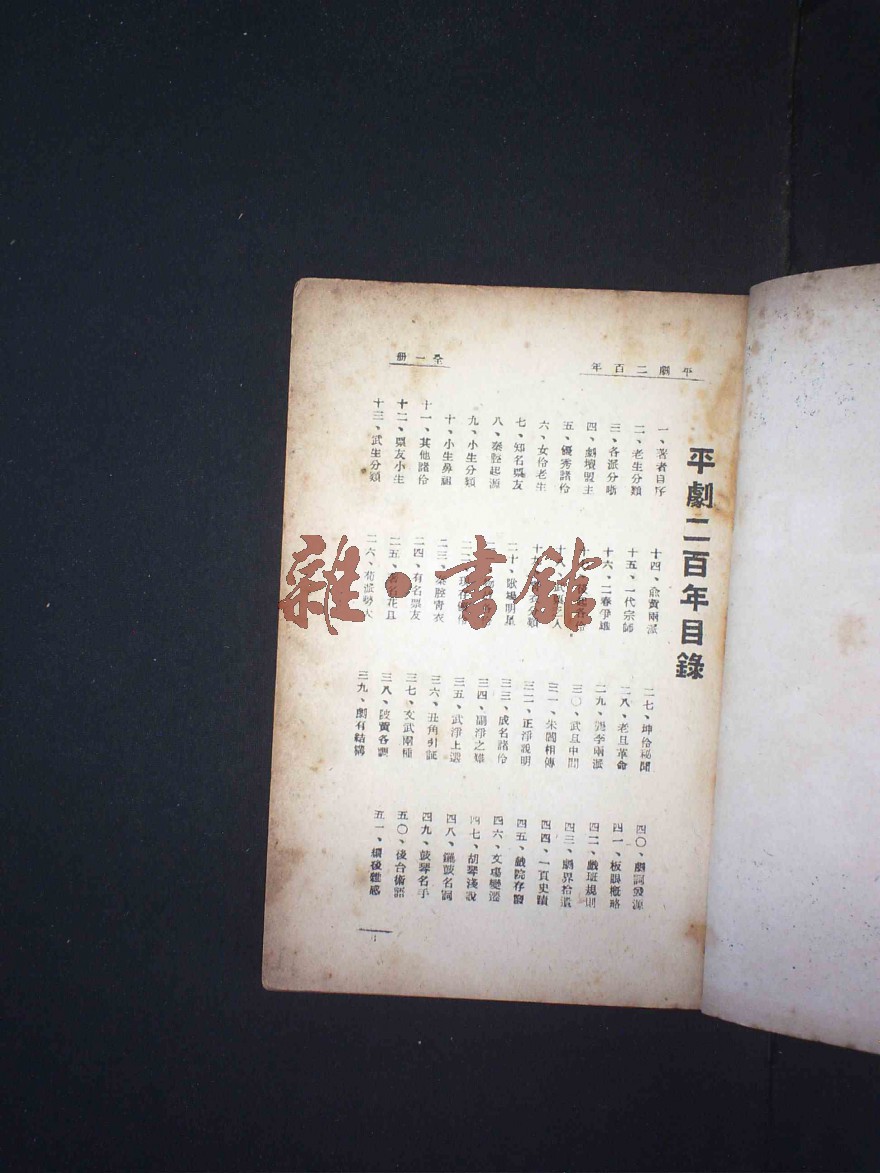 平劇二百年
全一冊
平劇二百年目錄
一、著者自序
二、老生分類
三、各派分晰
四、劇壇盟主
五、優秀諸伶
六、女伶老生
七、知名票友
八、秦腔起源
九、小生分類
十、小生鼻祖
十一、其他諸伶
十二、票友小生
十三、武生分類
十四、俞黃兩派
十五、一代宗師
十六、二春爭雄
二十、歌場明星
二三、秦腔青衣
二四、有名票友
二五、著名花旦
二六、荀派勢大
二七、坤伶秘聞
二八、老旦革命
二九、龔李兩派
三〇、武旦中間
三一、朱閻相傳
三二、正淨說明
三三、成名諸伶
三四、副淨之雄
三五、武淨上選
三六、丑角引証
三七、文武兩種
三八、皮黃各調
三九、劇有結構
四〇、劇詞發源
四一、板眼概略
四二、戲班規則
四三、劇界拾遺
四四、一頁史蹟
四五、戲院存廢
四六、文場變遷
四七、胡琴淺說
四八、鑼鼓名詞
四九、鼓琴名手
五〇、後台術語
五一、編後雜感
雜·書館